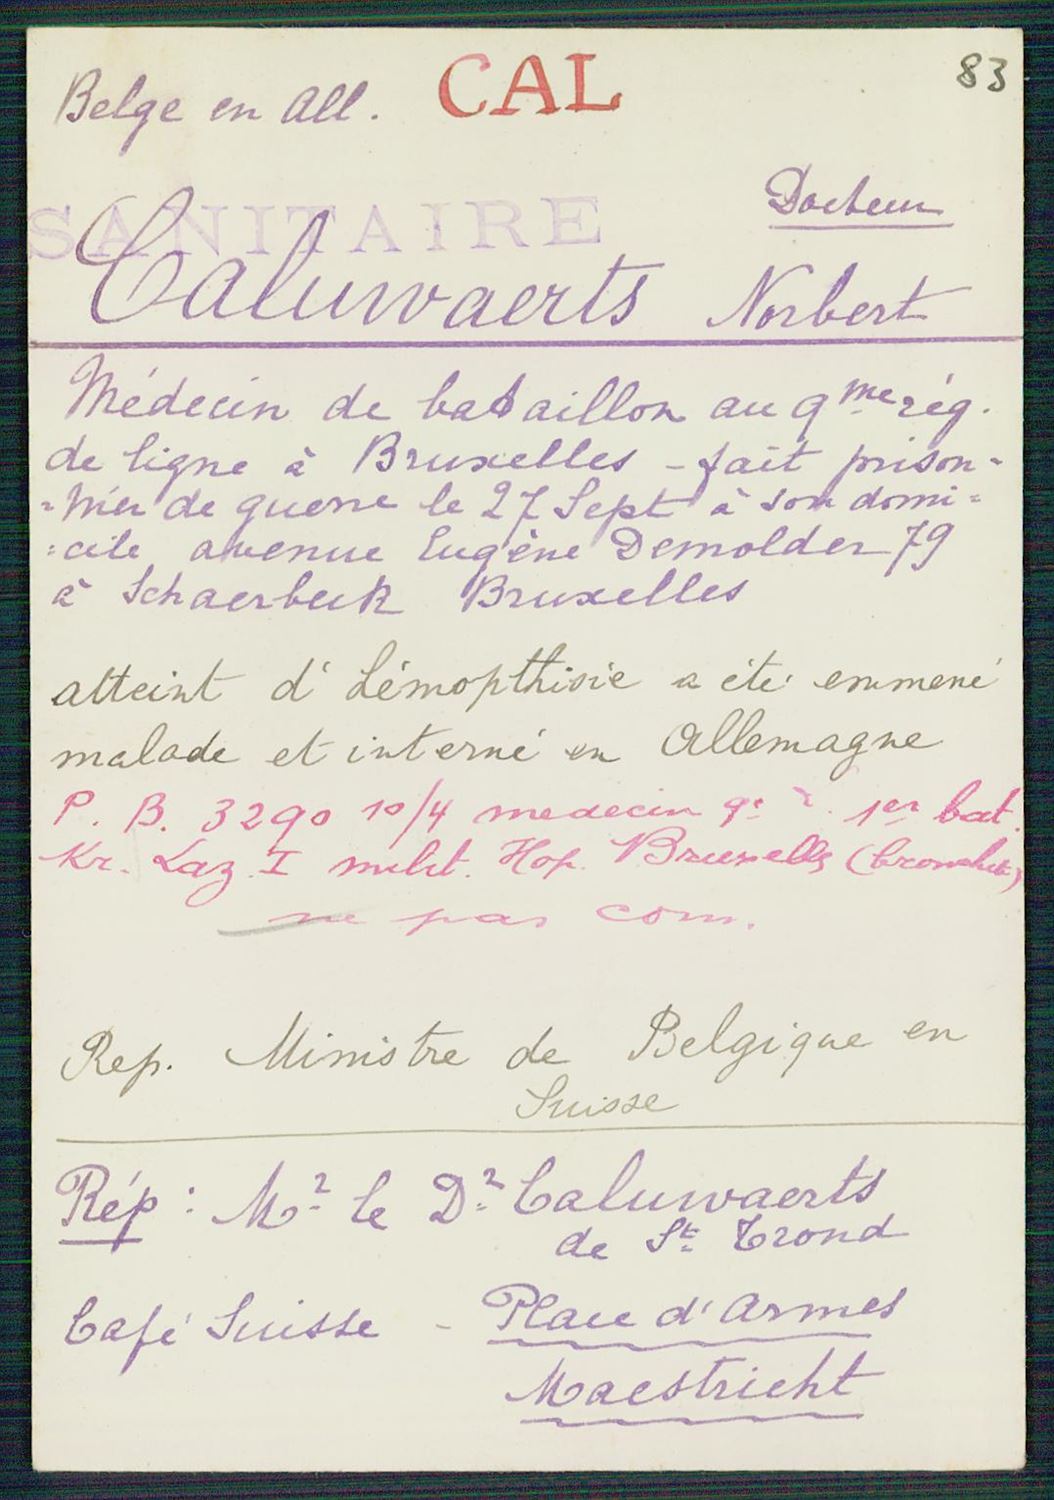 83
Belge en All. CAL
SANITAIRE
Docteur
Caluwaerts Norbert
Médecin de bataillon au 9me rég.
de ligne à Bruxelles - fait prison-
-nier de guerre le 27 Sept à son domi=
=cile avenue Eugène Demolder 79
à Schaerbeck Bruxelles
atteint d' hémopthisie a été emmené
malade et interné en Allemagne
P. B. 3290 10/4 medecin 9e 1er bat.
Kr. Laz. I milit. Hop. Bruxelles
ne pas com.
Rep. Ministre de Belgique en
Suisse
Rép : Mr le Dr Caluwaerts
de St Trond
Café Suisse - Place d'Armes
Maestricht